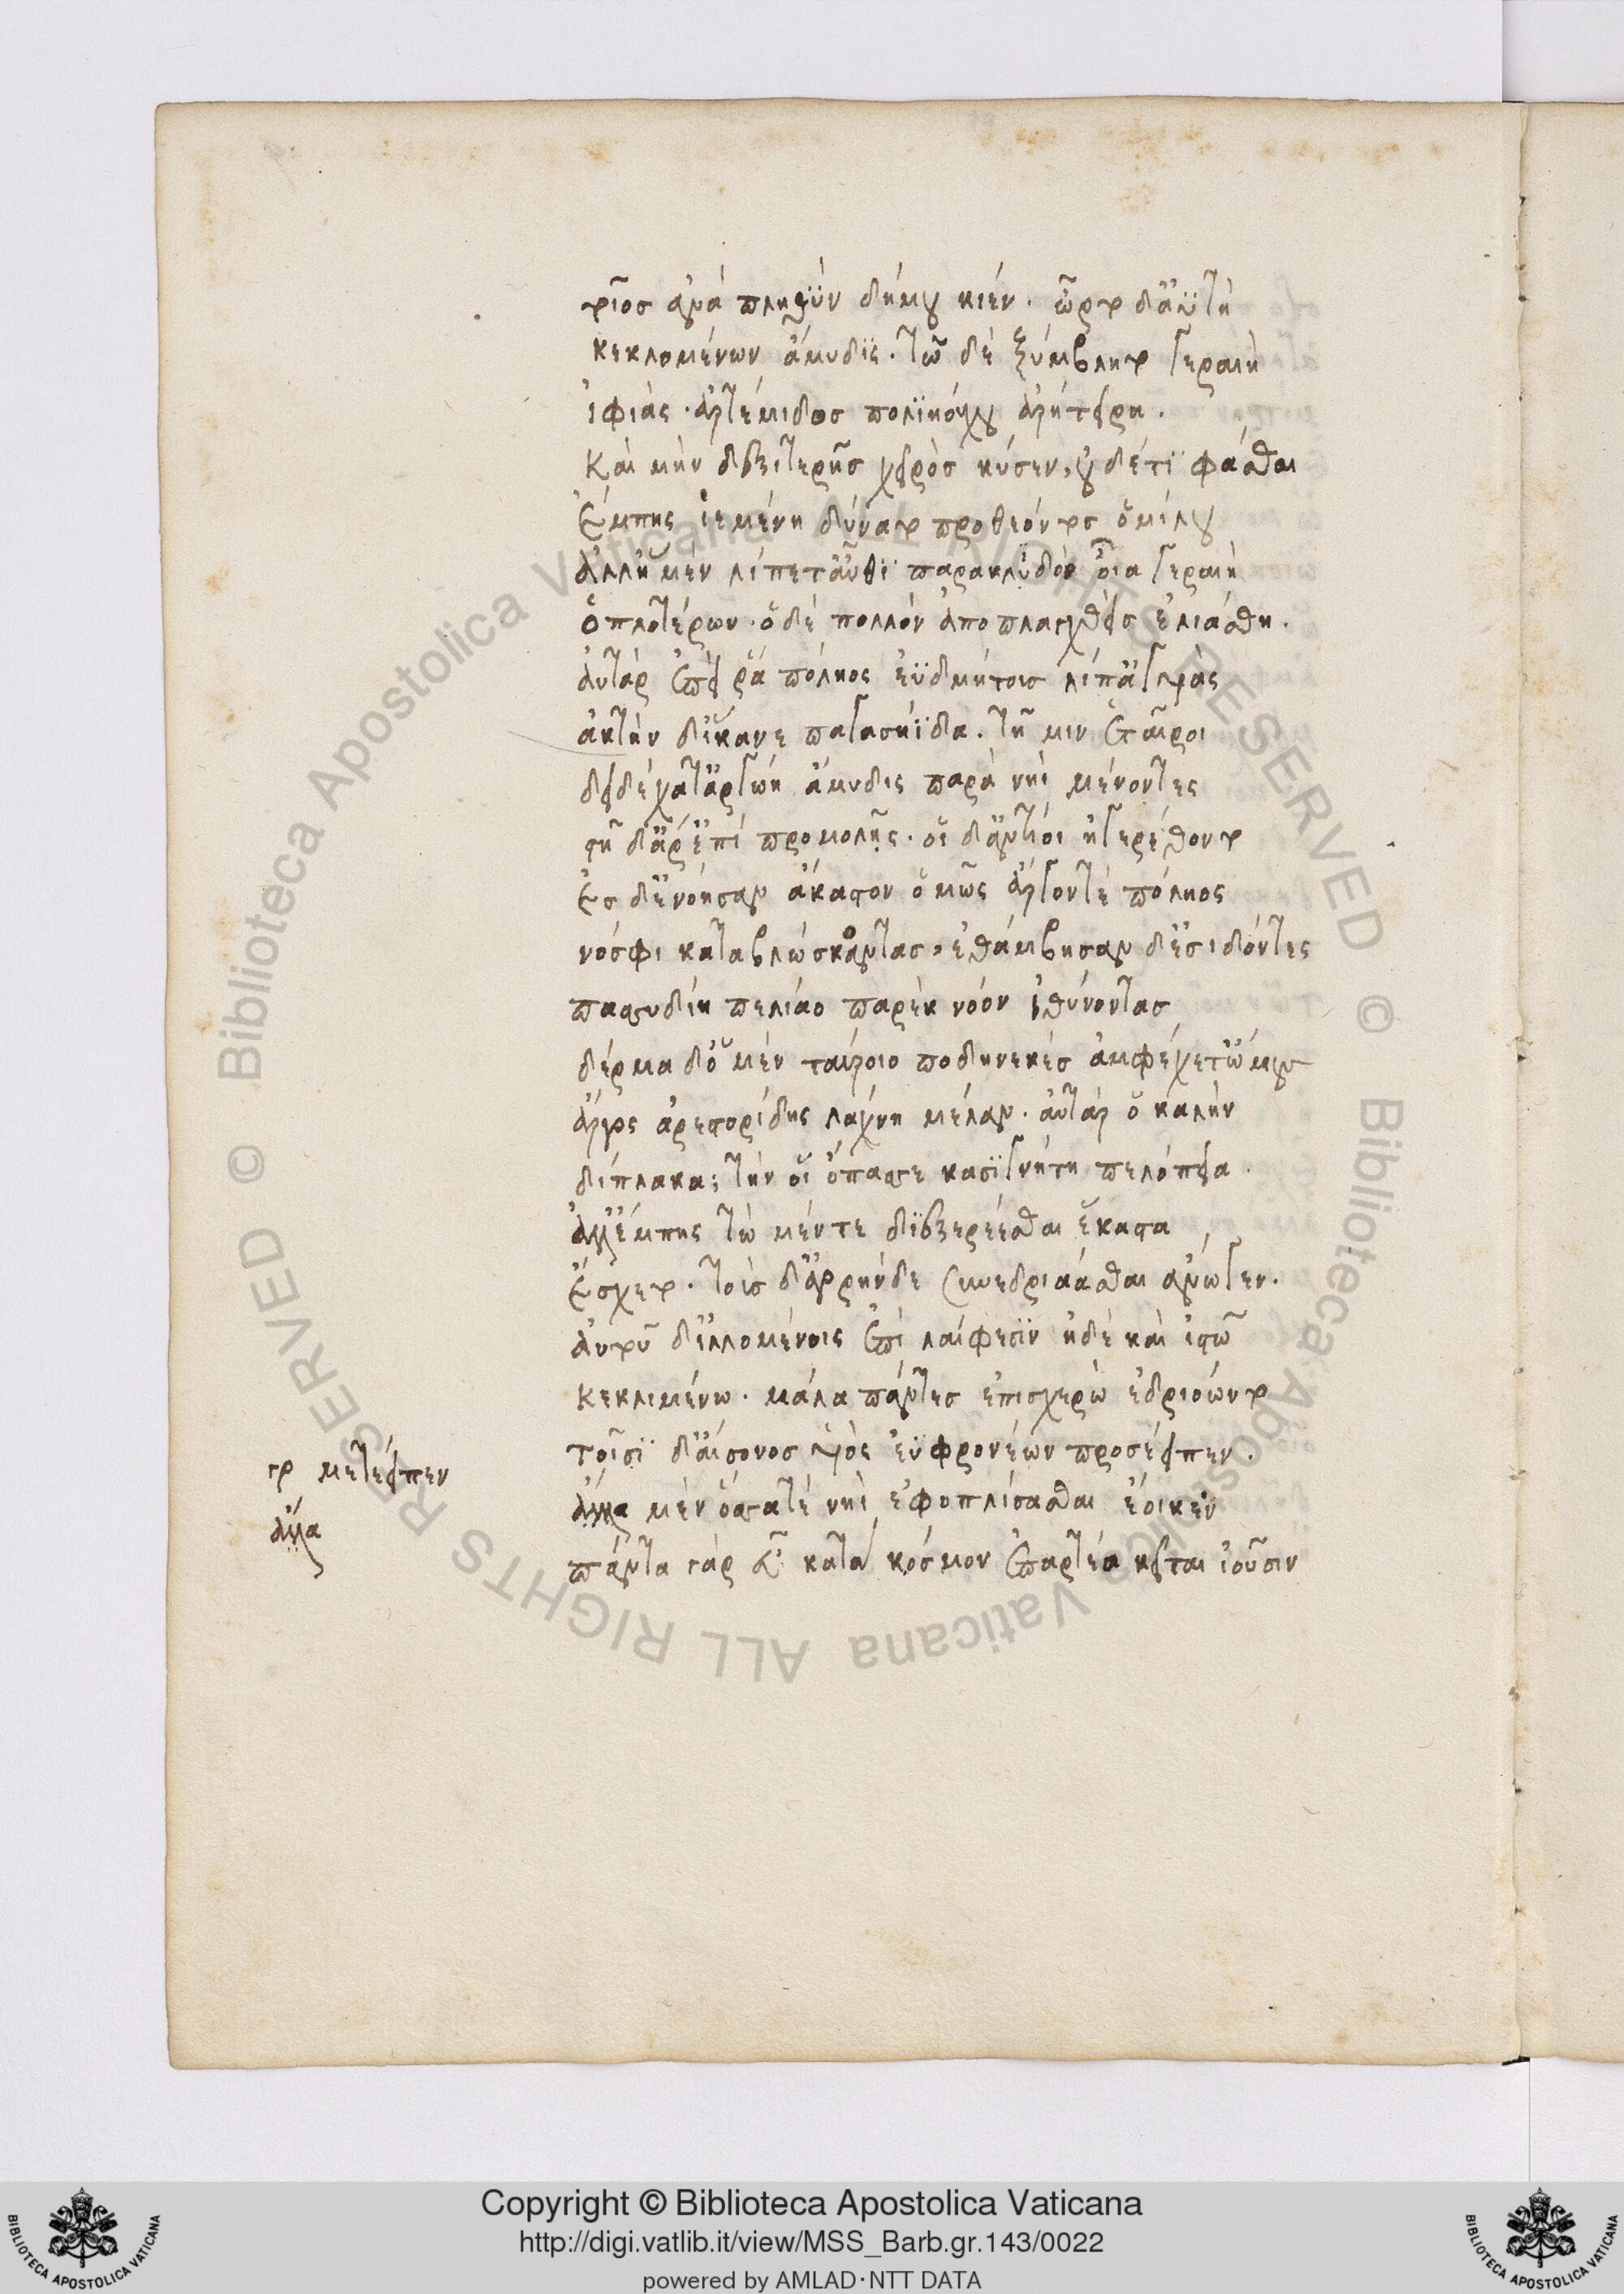 τοῖος ἀνὰ πληθὺν δήμου κίεν. ὦρτο δ' ἀϋτὴ
κεκλομένων ἄμυδις. τῷ δὲ ξύμβλητο γεραιὴ
ἰφιὰς. ἀρτέμιδος πολιηόχου ἀρήτειρη.
Καὶ μὴν δεξιτερῆς χειρὸς κύσεν, οὐδέ τι φάσθαι
ἔμπης ἱεμένη δύνατο προθέοντος ὁμίλου
ἀλλ' ἡ μὲν λίπετ' αὖθι παρακλιδὸν οἷα γεραιὴ
ὁπλοτέρων. ὁ δὲ πολλὸν ἀποπλαγχθεὶς ἐλιάσθη.
ἀυτὰρ ἐπεί ῥα πόληος ἐϋδμήτοις λίπ' ἀγυιὰς
ἀκτὴν δ' ἵκανε παγασηΐδα. τῇ μιν ἑταῖροι
δειδέχατ' ἀργώῃ ἄμυδις παρὰ νηὶ μένοντες
στῆ δ' ἄρ' ἐπὶ προμολῆς. οἱ δ' ἀντίοι ἠγερέθοντο
ἐς δ' ἐνόησαν ἄκαστον ὁμῶς ἄργον τε πόληος
νόσφι καταβλώσκοντας, ἐθάμβησαν δ' ἐσιδόντες
πασσυδίῃ πελίαο παρὲκ νόον ἰθύνοντας
δέρμα δ' ὁ μὲν ταύροιο ποδηνεκὲς ἀμφέχετ' ὤμους
ἄργος ἀρεστορίδης λάχνῃ μέλαν. αὐτὰρ ὁ καλὴν
δίπλακα, τήν οἱ ὄπασσε κασιγνήτη πελόπεια.
ἀλλ' ἔμπης τὼ μέν τε διεξερέεσθαι ἕκαστα
ἔσχετο. τοὺς δ' ἀγορήνδε συνεδριάασθαι ἄνωγεν.
ἀυτοῦ δ' ἰλλομένοις ἐπὶ λαίφεσιν ἠδὲ καὶ ἱστῷ
κεκλιμένῳ. μάλα πάντες ἐπισχερὼ ἑδριόωντο
τοῖσι δ' αἴσονος υἱὸς ἐϋφρονέων προσέειπεν.
γρ μετέειπεν
ἄλλα μὲν ὅσσα τε νηὶ ἐφοπλίσασθαι ἔοικεν
ἄλλα
πάντα γὰρ εὖ κατὰ κόσμον ἐπαρτέα κεῖται ἰοῦσιν
Copyright © Biblioteca Apostolica Vaticana
http://digi.vatlib.it/view/MSS_Barb.gr.143/0022
powered by AMLAD·NTT DATA
BIBLIOTECA APOSTOLICA VATICANA
BIBLIOTECA APOSTOLICA VATICANA
© Biblioteca Apostolica Vaticana ALL RIGHTS RESERVED © Biblioteca Apostolica Vaticana ALL RIGHTS RESERVED